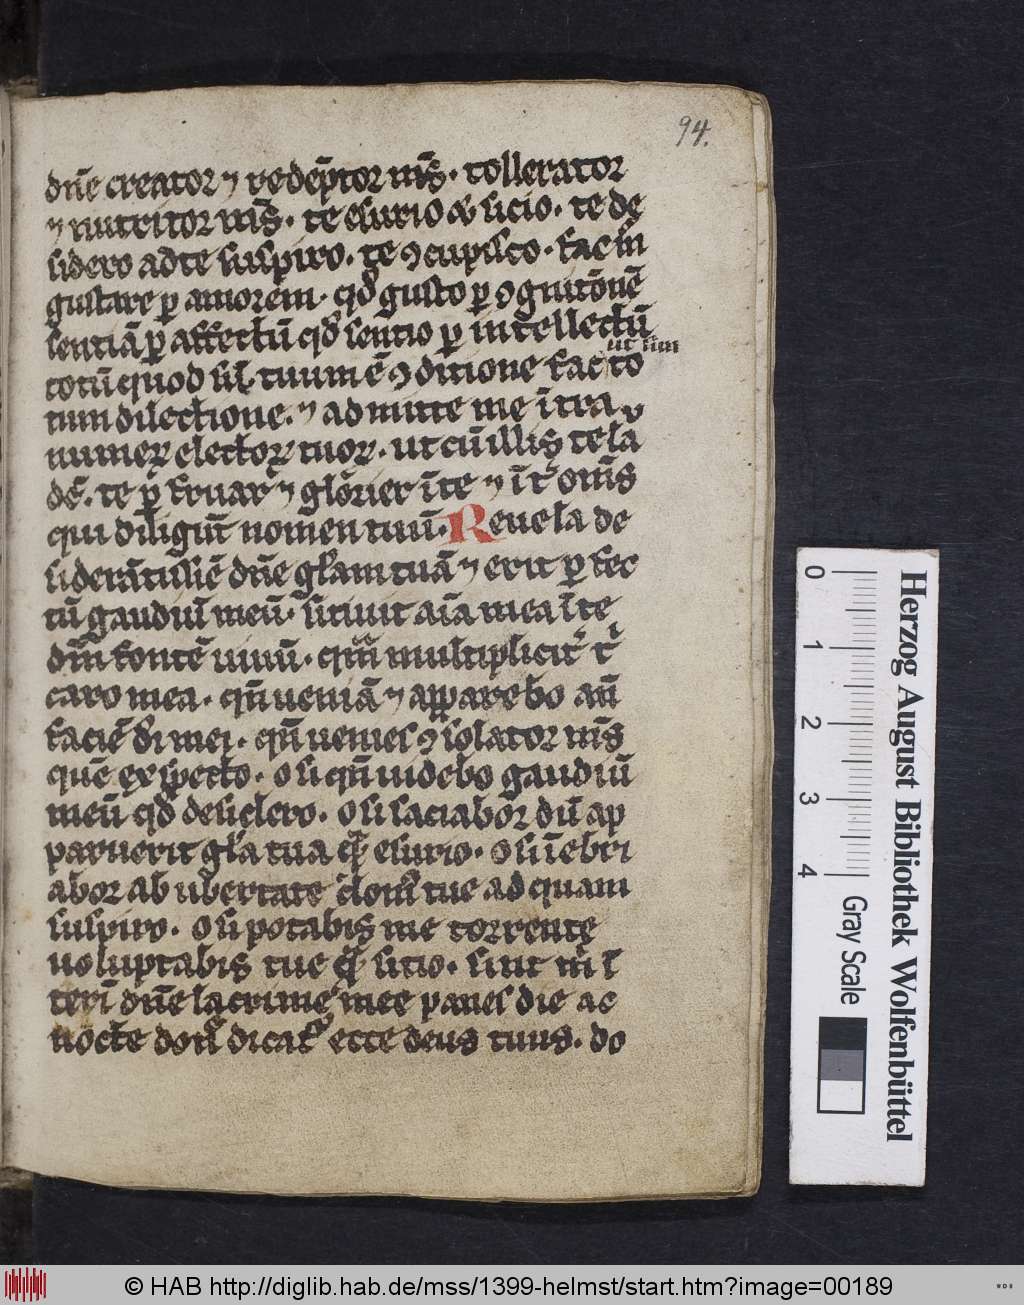 94.
dn̄e creator ⁊ redēptor nr̄s. tollerator
⁊ nutritor nr̄s. te esurio & sicio. te de
sidero ad te suspiro. te ꝯcupisco. fac m̄
gustare ꝑ amorem. qd̄ gusto ꝑ ꝯgnitōnē
sentiā ꝑ affectū qd̄ sentio ꝑ intellectū
ut sim
totū quod sū. tuum ē ꝯditione fac to
tum dilectione. ⁊ admitte me ītra
numeꝝ electoꝝ tuoꝝ. ut cū illis te la
dē. te fruar ⁊ glōrier ī te ⁊ īt̄ om̄s
qui diligūt nomen tuū. Reuela de
siderātis dn̄e gl̄am tuā ⁊ erit ꝑfec
tū gaudiū meū. sitiuit aīa mea ī te
dm̄ fontē uiuū. qm̄ multiplicit̄ t̄
caro mea. qn̄ ueniā ⁊ apparebo an̄
faciē dī mei. qn̄ uenies ꝯsolator ms̄
quē expecto. o si qn̄ uidebo gaudiū
meū qd̄ desidero. o si saciabor dū ap
paruerit gl̄a tua quā esurio. o si īebri
abor ab ubertate domꝰ tue ad quam
suspiro. o si potabis me torrente
uoluptatis tue quē sitio. sint m̄ ī
teri dn̄e lacrime mee panes die ac
nocte don̄ dicat̄ ecce deus tuus. do
0 1 2 3 4
Gray Scale
Herzog August Bibliothek Wolfenbüttel
© HAB http://diglib.hab.de/mss/1399-helmst/start.htm?image=00189